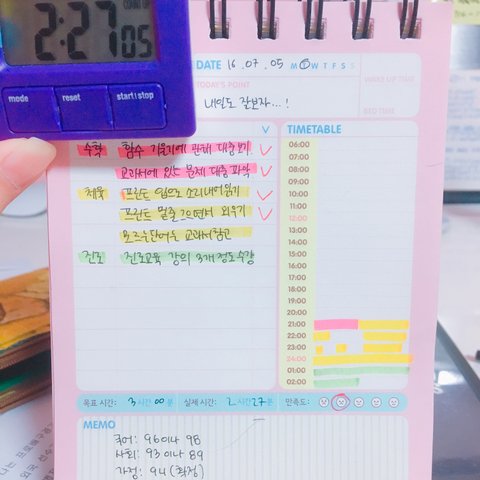 2:27 05
COUNT UP
mode reset start|stop
DATE 16 . 07 . 05 M T W T F S S
WAKE UP TIME
TODAY'S POINT
내일도 잘보자...!
BED TIME
TIMETABLE
수학 함수 기울기에 관해 대충 보기
교과서에 있는 문제 대충 파악
체육 프린트 입으로 소리내어 읽기
프린트 밑줄 그으면서 외우기
모르는단어는 교과서참고
진로 진로교육 강의 3개 정도 수강
06:00
07:00
08:00
09:00
10:00
11:00
12:00
13:00
14:00
15:00
16:00
17:00
18:00
19:00
20:00
21:00
22:00
23:00
24:00
01:00
02:00
목표 시간: 3 시간 00 분 실제 시간: 2 시간 27 분 만족도:
MEMO
국어: 96이나 98
사회: 93이나 89
가정: 94 (확정)